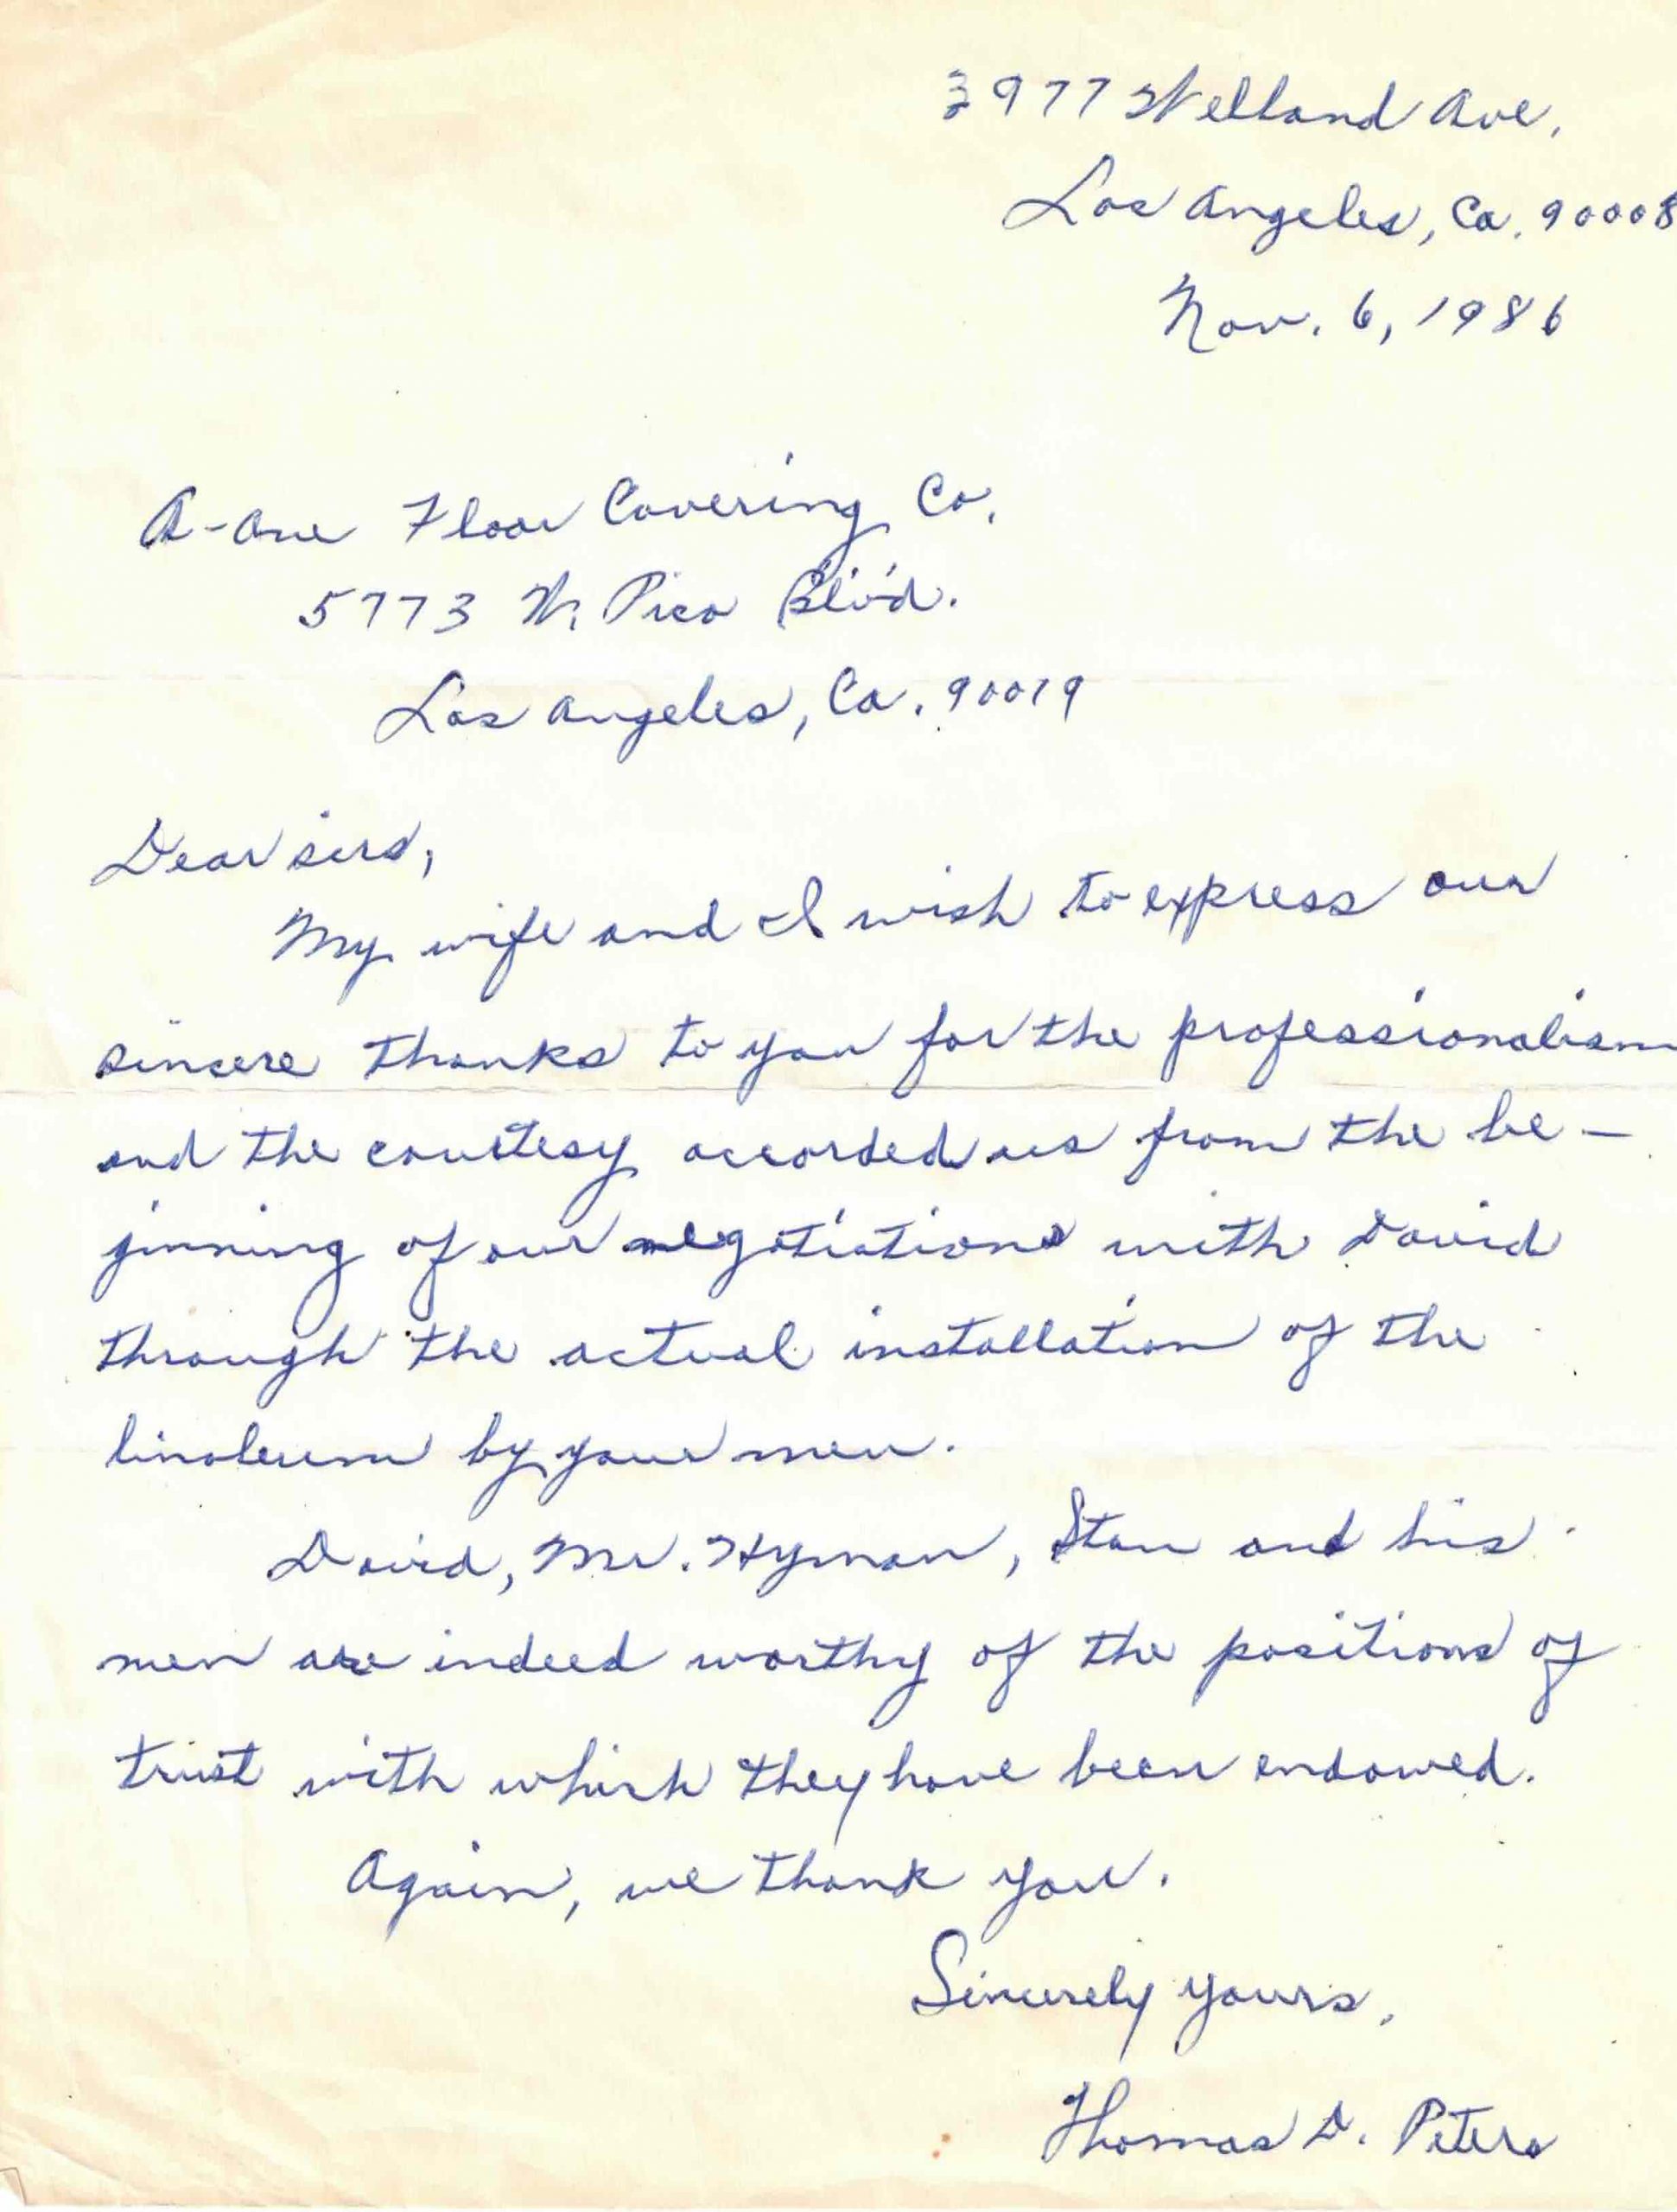 3977 Welland Ave.
Los Angeles, Ca. 90008
Nov. 6, 1986
A-One Floor Covering Co.
5773 W. Pico Blvd.
Los Angeles, Ca. 90019
Dear sirs,
My wife and I wish to express our
sincere thanks to you for the professionalism
and the courtesy accorded us from the be-
ginning of our negotiations with David
through the actual installation of the
linoleum by your men.
David, Mr. Hyman, Stan and his
men are indeed worthy of the positions of
trust with which they have been endowed.
Again, we thank you.
Sincerely yours,
Thomas D. Peters